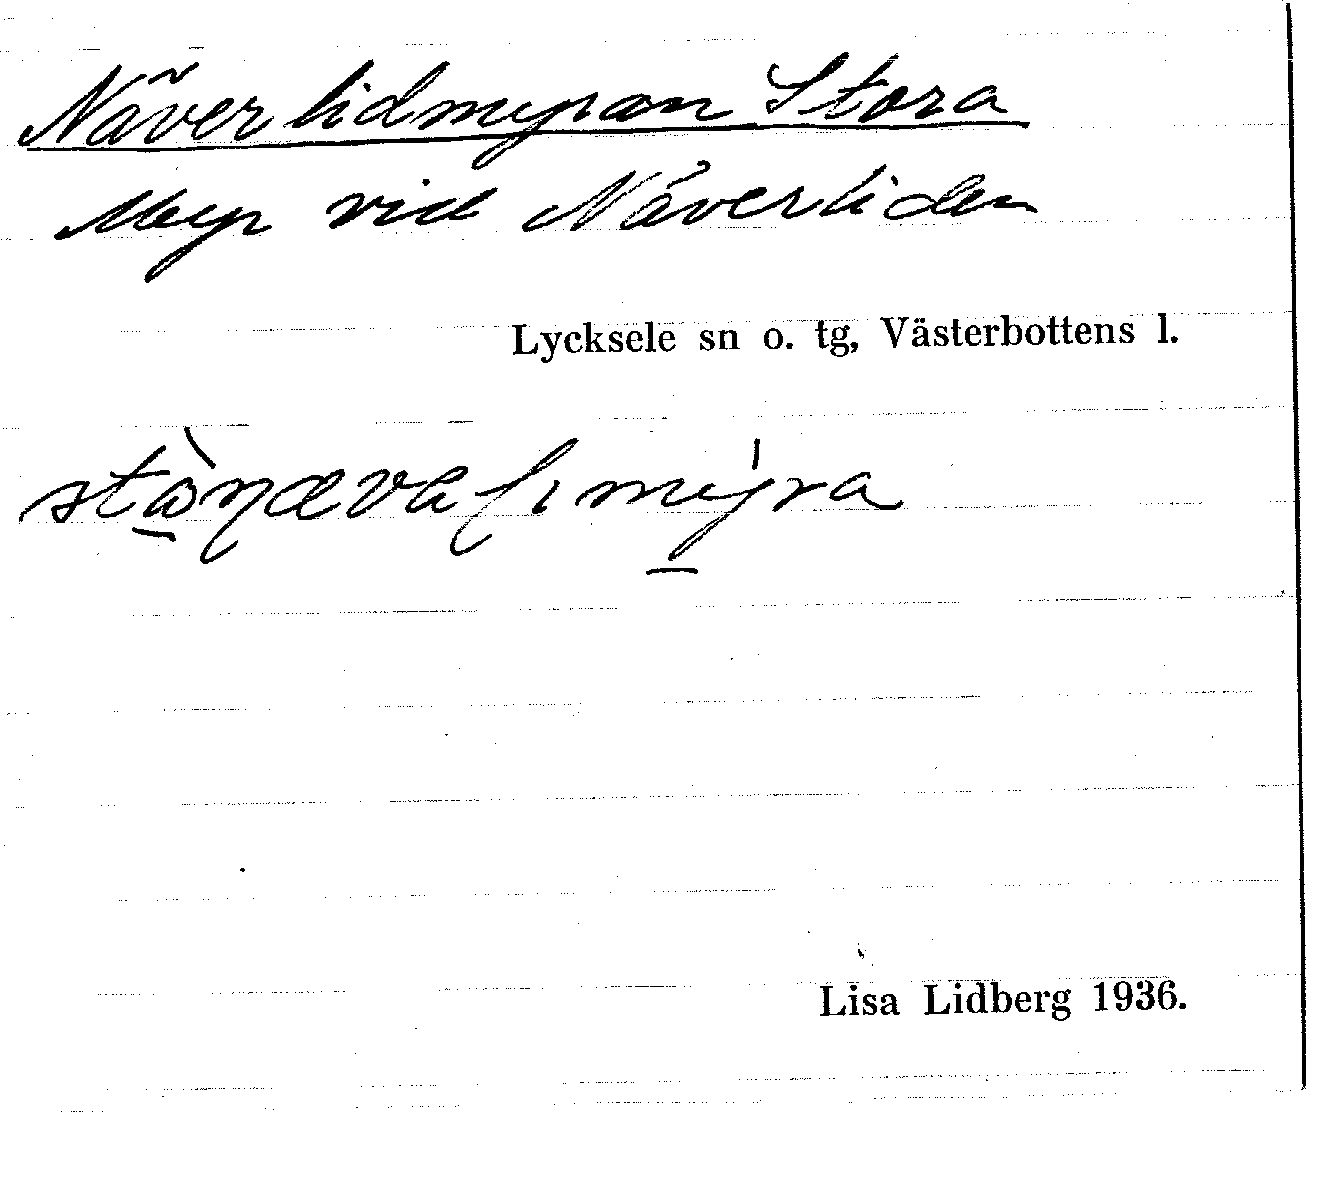 Näverlidmyran Stora
Myr vid Näverliden
Lycksele sn o. tg, Västerbottens l.
Lisa Lidberg 1936.